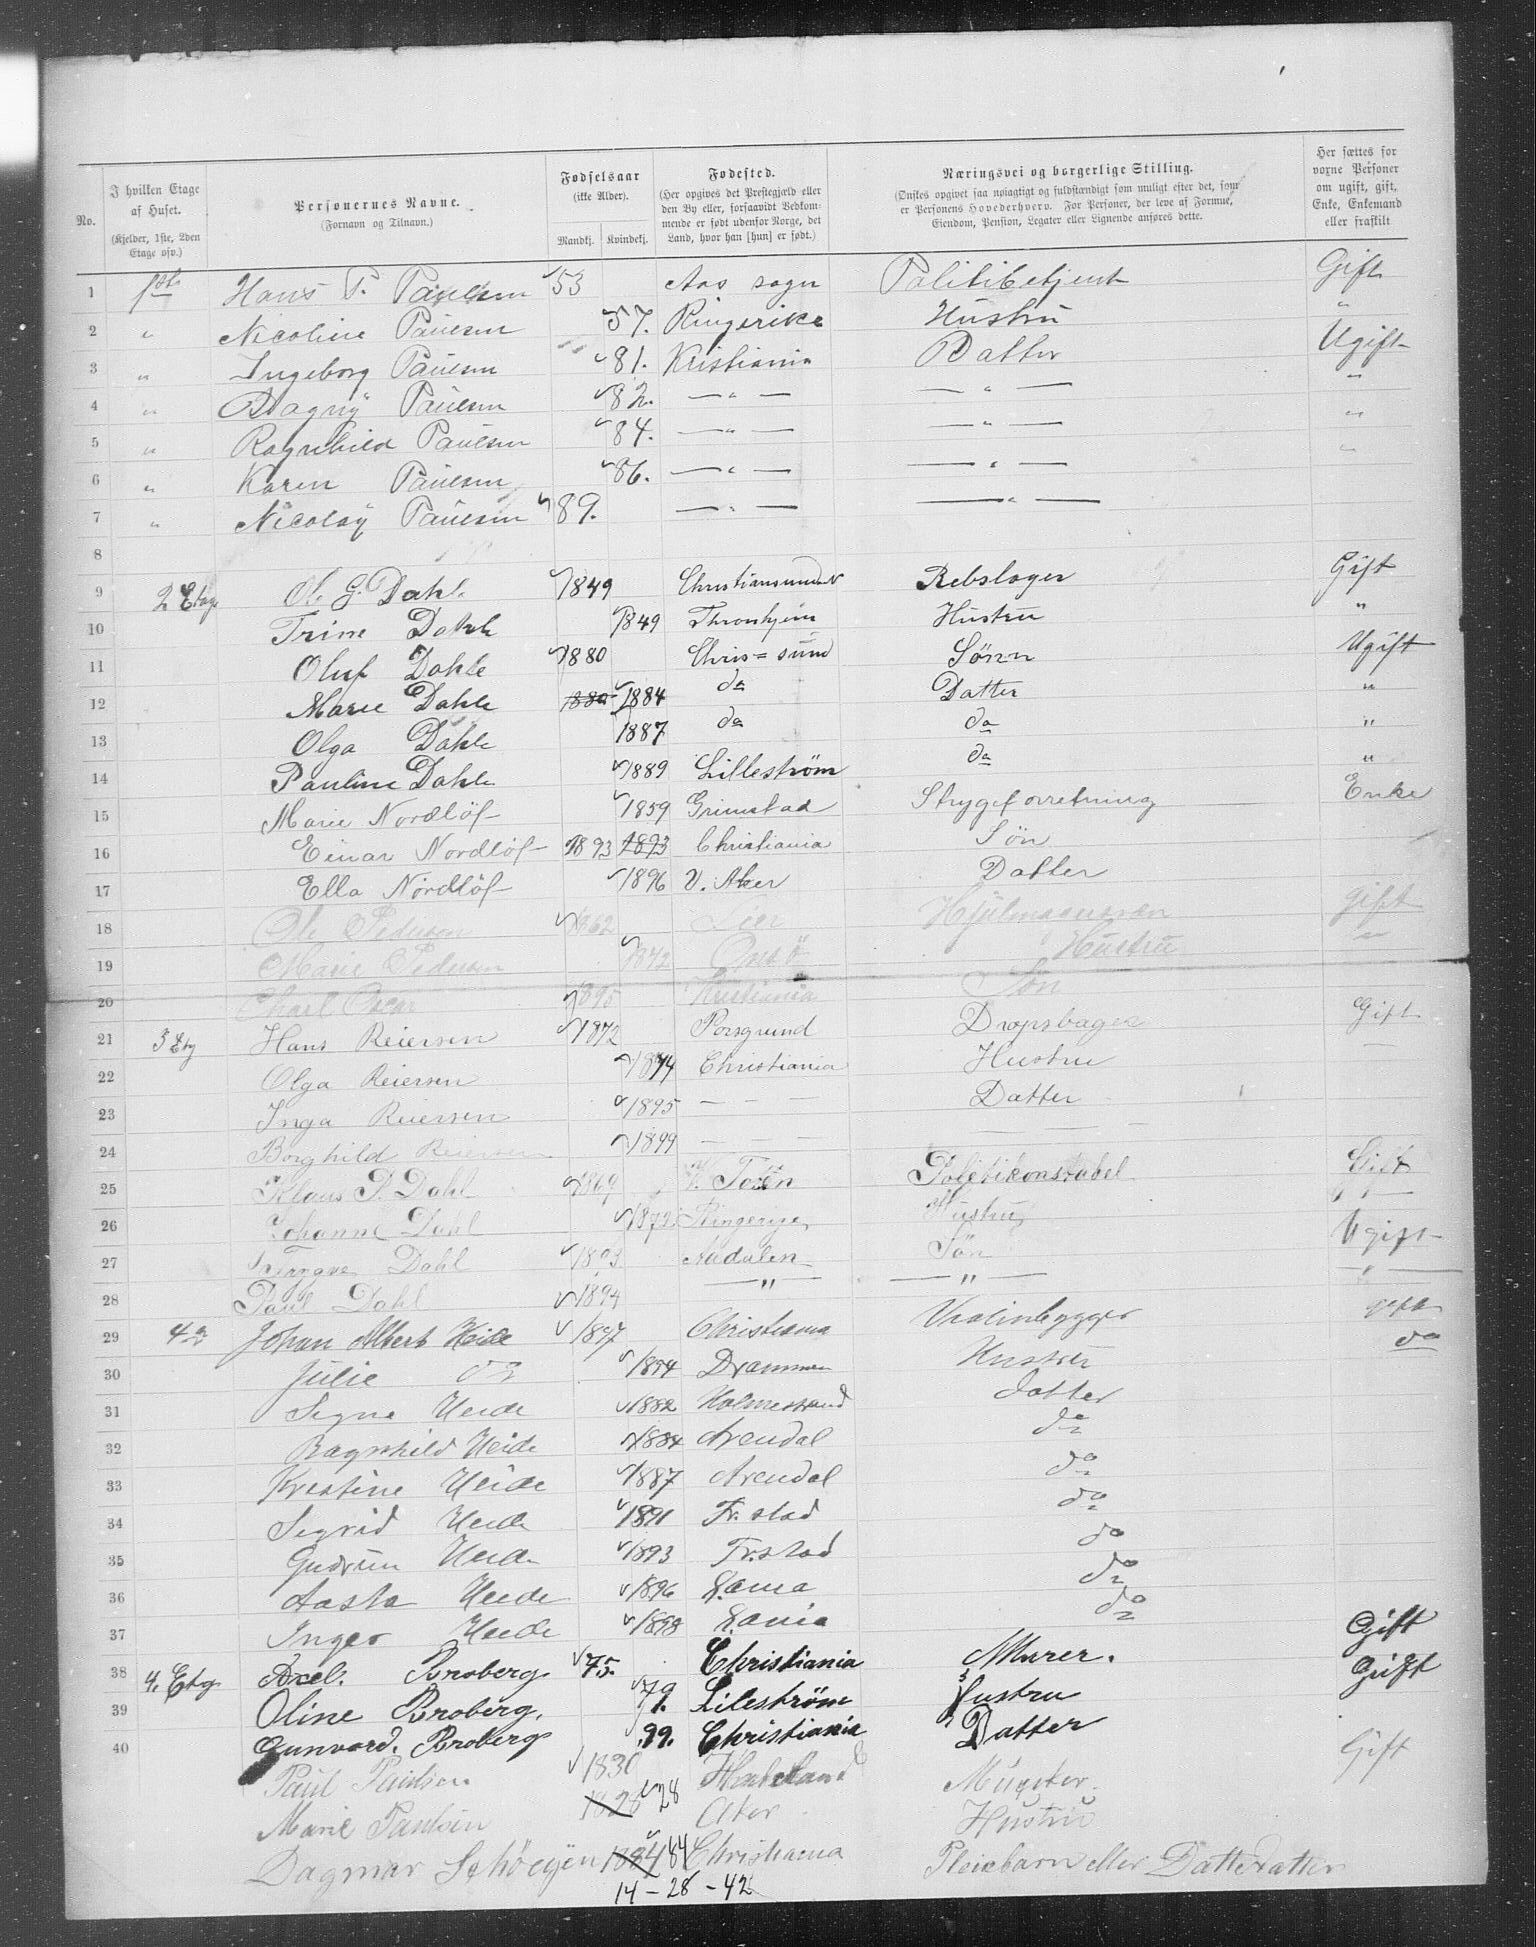 No.
I hvilken Etage af Huset. (Kjelder, 1ste, 2den Etage osv.)
Personernes Navne. (Fornavn og Tilnavn.)
Fødselsaar (ikke Alder). Mandkj. Kvindekj.
Fødested. (Her opgives det Prestegjæld eller den By eller, forsaavidt Vedkommende er født udenfor Norge, det Land, hvor han [hun] er født.)
Næringsvei og borgerlige Stilling. (Ønskes opgivet saa nøiagtigt og fuldstændigt som muligt efter det, som er Personens Hovederhverv. For Personer, der leve af Formue, Eiendom, Pension, Legater eller Lignende anføres dette.
Her sættes for voxne Personer om ugift, gift, Enke, Enkemand eller fraskilt
1 1ste Hans P. Paulsen 53 Aas sogn Politibetjent Gift
2 " Nicoline Paulsen 57. Ringerike Hustru "
3 " Ingeborg Paulsen 81. Kristiania Datter Ugift
4 " Dagny Paulsen 82. — " — — " — "
5 " Ragnhild Paulsen 84. — " — — " — "
6 " Karen Paulsen 86. — " — — " — "
7 " Nicolay Paulsen 89. — " — — " —
8
9 2 Etage Ole G. Dahle 1849 Christiansund N Rebslager Gift
10 Trine Dahle 1849 Thronhjem Hustru "
11 Oluf Dahle 1880 Chris=sund Sønn Ugift
12 Marie Dahle 1880 1884 do Datter "
13 Olga Dahle 1887 do do "
14 Pauline Dahle 1889 Lillestrøm do "
15 Marie Nordlöf 1859 Grimstad Strygeforretning Enke
16 Einar Nordlöf 1893 1893 Christiania Søn
17 Ella Nordlöf 1896 V. Aker Datter
18 Ole Pedersen 1862 Lier gift
19 Marie Pedersen 1872 Onsö Hustru "
20 Charl Oscar 1895 Kristiania Søn
21 3 Etg Hans Reiersen 1872 Porsgrund Dropsbager Gift
22 Olga Reiersen 1874 Christiania Hustru —
23 Inga Reiersen 1895 — — — Datter
24 Borghild Reiersen 1899 — — — — — —
25 Klaus P. Dahl 1869 V. Toten Politikonstabel Gift
26 Johanne Dahl 1872 Ringerige Hustru "
27 Trygve Dahl 1893 Aadalen Søn Ugift
28 Paul Dahl 1894 — " — — " — — " —
29 4de Johan Albert Heide Christiania gift
30 Julie do Drammen Hustru do
31 Signe Heide 1882 Holmestrand datter
32 Ragnhild Heide 1884 Arendal do
33 Kristine Heide 1887 Arendal do
34 Sigrid Heide 1891 Fr.stad do
35 Gudrun Heide 1893 Fr.stad do
36 Aasta Heide 1896 do
37 Inger Heide 1898 do
38 4. Etg. Axel. Broberg 75. Christiania Murer. Gift
39 Oline Broberg. 79. Lilestrøm Hustru Gift
40 Gunvord. Broberg 99. Christiania Datter
Paul Paulsen 1830 Hadeland Gift
Marie Paulsen 1828 28 Aker Hustru
Dagmar 1884 84 Christiania Pleiebarn eller Datterdatter
14 - 28 - 42